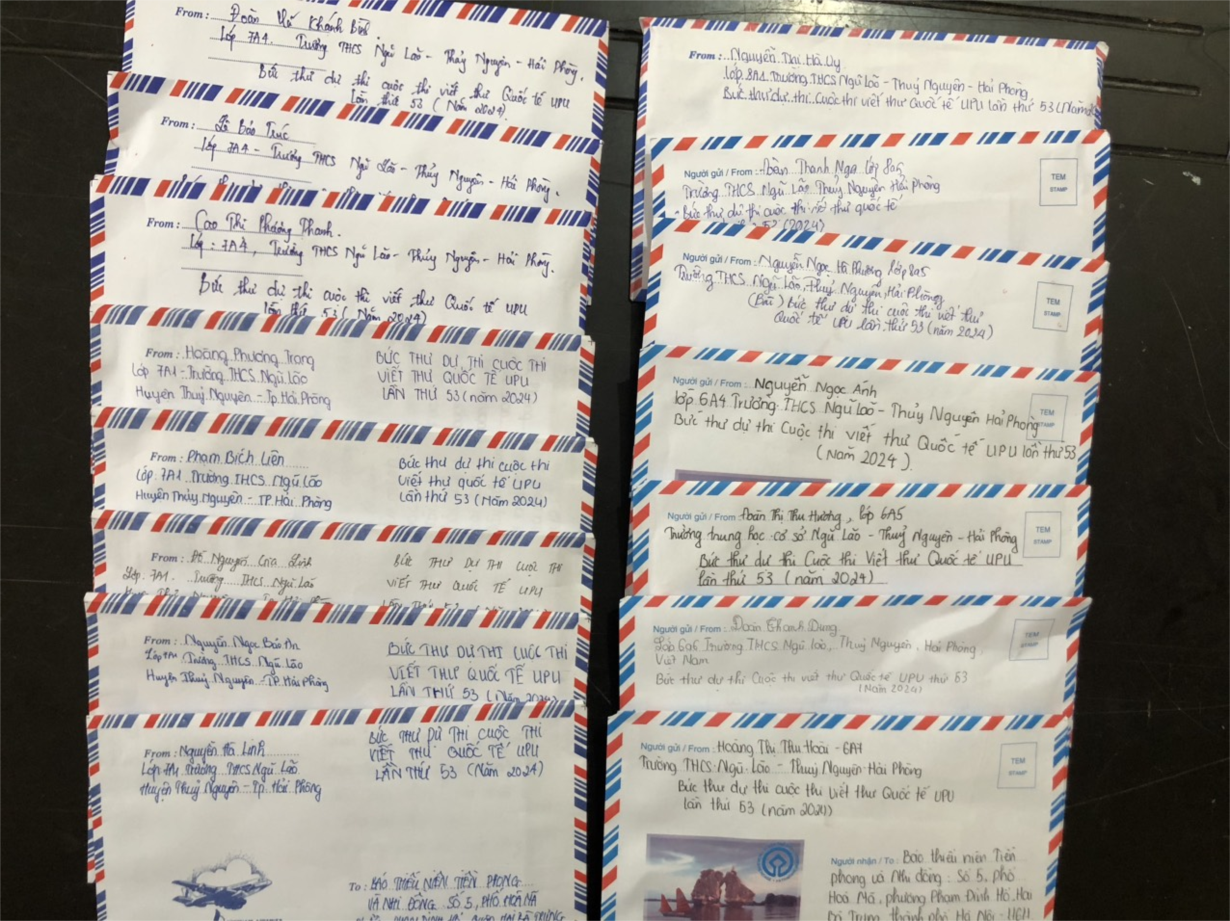 From: Đoàn Vũ Khánh Bình
Lớp 7A4. Trường THCS Ngũ Lão - Thủy Nguyên - Hải Phòng.
Bức thư dự thi cuộc thi viết thư Quốc tế UPU
lần thứ 53 (Năm 2024)
From: Lê Bảo Trúc
Lớp 7A4 - Trường THCS Ngũ Lão - Thủy Nguyên - Hải Phòng.
From: Cao Thị Phương Thanh.
Lớp: 7A4, Trường THCS Ngũ Lão - Thủy Nguyên - Hải Phòng.
Bức thư dự thi cuộc thi viết thư Quốc tế UPU
lần thứ 53 (Năm 2024)
From: Hoàng Phương Trang
Lớp 7A1 - Trường THCS Ngũ Lão
Huyện Thuỷ Nguyên - Tp Hải Phòng
BỨC THƯ DỰ THI CUỘC THI
VIẾT THƯ QUỐC TẾ UPU
LẦN THỨ 53 (năm 2024)
From: Phạm Bích Liên
Lớp 7A1 Trường THCS Ngũ Lão
Huyện Thủy Nguyên - TP Hải Phòng
Bức thư dự thi cuộc thi
Viết thư quốc tế UPU
Lần thứ 53 (Năm 2024)
From: Đỗ Nguyễn Gia Linh
Lớp 7A1. Trường THCS Ngũ Lão
BỨC THƯ DỰ THI CUỘC THI
VIẾT THƯ QUỐC TẾ UPU
From: Nguyễn Ngọc Bảo An
Lớp 7A1 Trường THCS Ngũ Lão
Huyện Thuỷ Nguyên - TP Hải Phòng
BỨC THƯ DỰ THI CUỘC THI
VIẾT THƯ QUỐC TẾ UPU
LẦN THỨ 53 (Năm 2024)
From: Nguyễn Hà Linh
Lớp 7A1 Trường THCS Ngũ Lão
Huyện Thuỷ Nguyên - Tp. Hải Phòng
BỨC THƯ DỰ THI CUỘC THI
VIẾT THƯ QUỐC TẾ UPU
LẦN THỨ 53 (Năm 2024)
To: BÁO THIẾU NIÊN TIỀN PHONG
VÀ NHI ĐỒNG SỐ 5, PHỐ HOÀ MÃ
From: Nguyễn Thị Hà Vy
Lớp 8A1 Trường THCS Ngũ Lão - Thuỷ Nguyên - Hải Phòng
Bức thư dự thi Cuộc thi viết thư Quốc tế UPU lần thứ 53 (Năm
Người gửi / From: Đoàn Thanh Nga lớp 8a5
Trường THCS Ngũ Lão Thuỷ Nguyên Hải Phòng
- Bức thư dự thi cuộc thi viết thư quốc tế
53 (2024)
TEM
STAMP
Người gửi / From: Nguyễn Ngọc Hà Phương lớp 8a5
Trường THCS Ngũ Lão, Thuỷ Nguyên, Hải Phòng
Bức thư dự thi cuộc thi viết thư
Quốc tế UPU lần thứ 53 (năm 2024)
TEM
STAMP
Người gửi / From: Nguyễn Ngọc Ánh
lớp 6A4 Trường THCS Ngũ Lão - Thuỷ Nguyên Hải Phòng
Bức thư dự thi Cuộc thi viết thư Quốc tế UPU lần thứ 53
(Năm 2024)
TEM
STAMP
Người gửi / From: Đoàn Thị Thu Hương, lớp 6A5
Trường trung học cơ sở Ngũ Lão - Thuỷ Nguyên - Hải Phòng
Bức thư dự thi Cuộc thi Viết thư Quốc tế UPU
lần thứ 53 (năm 2024)
TEM
STAMP
Người gửi / From: Đoàn Thanh Dung
Lớp 6a6 Trường THCS Ngũ lão, Thuỷ Nguyên, Hải Phòng,
Việt Nam
Bức thư dự thi Cuộc thi viết thư Quốc tế UPU thứ 53
(Năm 2024)
TEM
STAMP
Người gửi / From: Hoàng Thị Thu Hoài - 6A1
Trường THCS Ngũ Lão - Thuỷ Nguyên - Hải Phòng
Bức thư dự thi cuộc thi Viết thư Quốc tế UPU
lần thứ 53 (năm 2024)
TEM
STAMP
Người nhận / To: Báo thiếu niên Tiền
phong và Nhi đồng: Số 5, phố
Hoà Mã, phường Phạm Đình Hổ, Hai
Bà Trưng, thành phố Hà Nội -